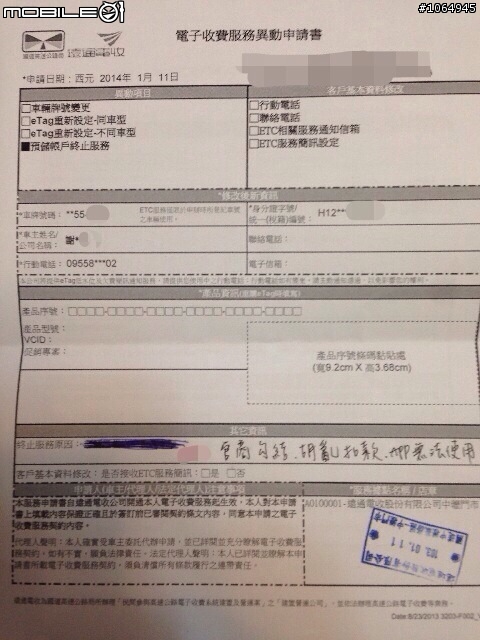 mobile01
#1064945
遠通電收
電子收費服務異動申請書
*申請日期：西元 2014年 1月 11日
異動項目
客戶基本資料修改
□車輛牌號變更
□eTag重新設定-同車型
□eTag重新設定-不同車型
■預儲帳戶終止服務
□行動電話
□聯絡電話
□ETC相關服務通知信箱
□ETC服務簡訊設定
*修改後新資訊
*車牌號碼： **55
*身分證字號/
統一(稅籍)編號： H12**
*車主姓名/
公司名稱：
聯絡電話：
*行動電話： 09558***02
電子信箱：
產品序號： □□□□-□□□□-□□□□-□□□□-□□□□
產品型號：
VCID：
促銷專案：
產品序號條碼黏貼處
(寬9.2cm X 高3.68cm)
其它資訊
終止服務原因：
官商勾結、胡亂扣款、
使用
客戶基本資料修改：是否接收ETC服務簡訊：□是 □否
本服務申請書自遠通電收公司開通本人電子收費服務起生效，本人對本申請
書上填載內容保證正確且於簽訂前已審閱契約條文內容，同意本申請之電子
收費契約內容。
代理人聲明：本人確實受車主委託代辦申請，並已詳閱並充分瞭解電子收費
服務契約，如有不實，願負法律責任。法定代理人聲明：本人已詳閱並瞭解本
申請書所載電子收費服務契約內容，須負清償所有條款履行之連帶責任。
A0100001-遠通電收股份有限公司中壢門市
103. 01. 11
Date:8/23/2013 3203-F002_V